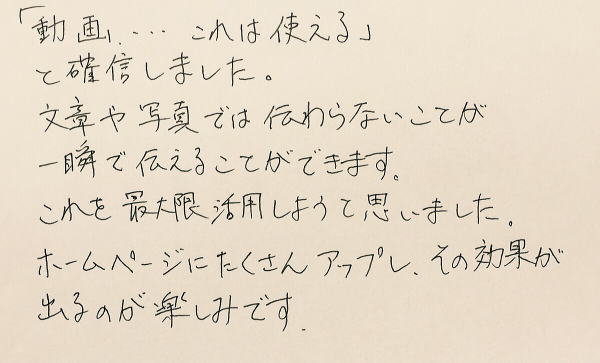 「動画、… これは使える」
と確信しました。
文章や写真では伝わらないことが
一瞬で伝えることができます。
これを最大限活用しようと思いました。
ホームページにたくさんアップし、その効果が
出るのが楽しみです.